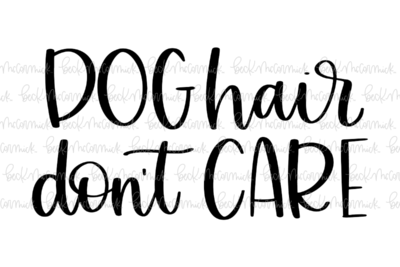 DOG hair
don't CARE